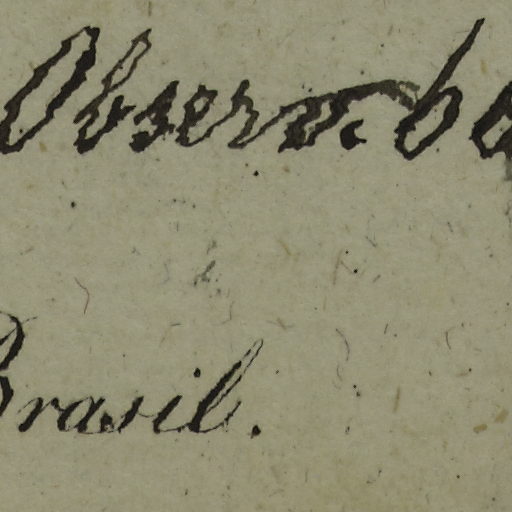 Observ. bo
Brasil.